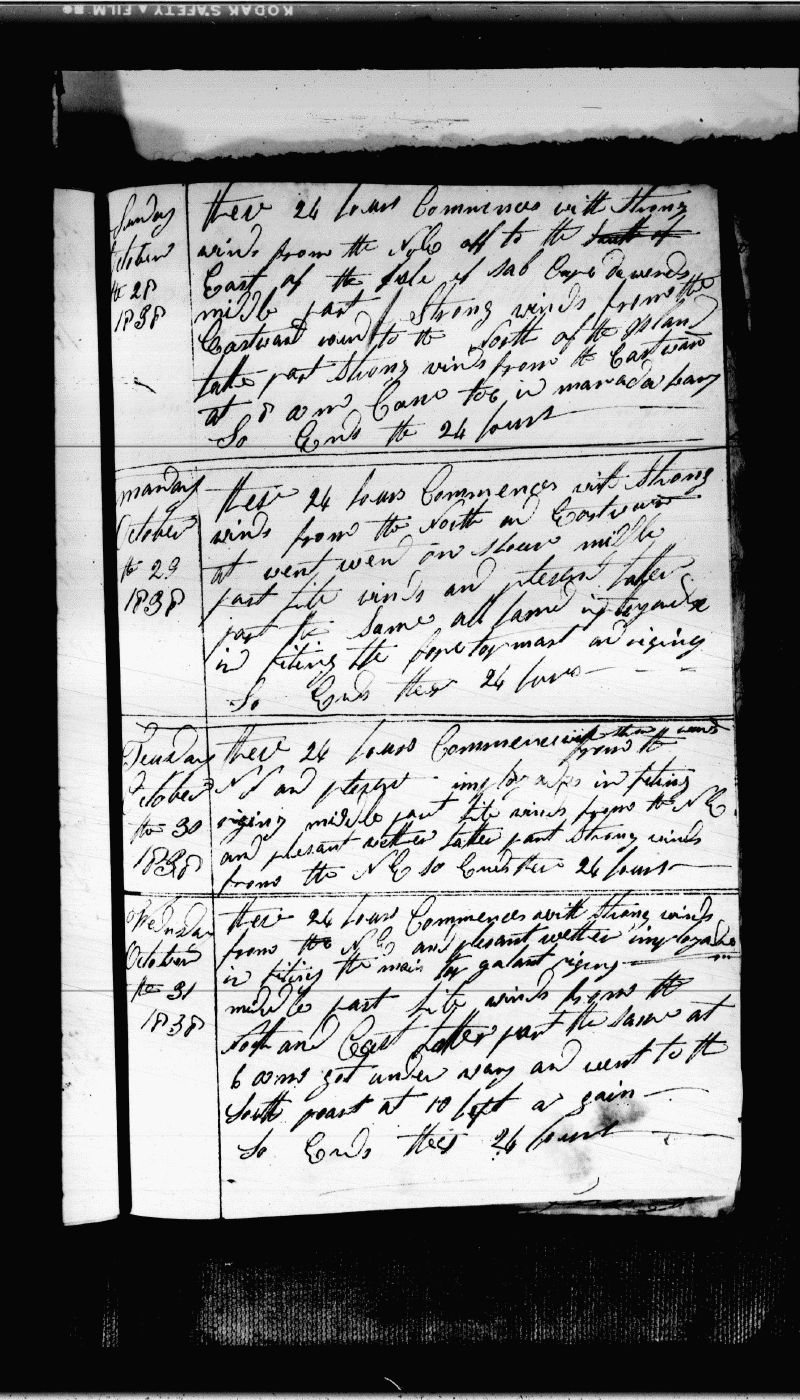 KODAK SAFETY FILM
Sunday
October
the 28
1838
these 24 hours Commences with Strong
winds from the NE off to the South of
East of the Isle of sal Cape de verds
middle part Strong winds from the
Eastward round to the North of the Island
latter part Strong winds from the Eastward
at 8 am Came too in marada bay
So Ends the 24 hours
monday
October
the 29
1838
these 24 hours Commences with Strong
winds from the North and Eastward
at went on Shore middle
part lite winds and plesent latter
part the Same all hand imployed
in fiting the fore topmast and riging
So Ends these 24 hours
Teusday
October
the 30
1838
these 24 hours Commences with the wind
from the
NE and plesent imployed in fiting
riging middle part lite winds from the NE
and plesant wether latter part Strong winds
from the NE So Ends these 24 hours
Wednsday
October
the 31
1838
these 24 hours Commences with Strong winds
from the NE and plesant wether imployed
in fiting the main top galant riging
middle part lite winds from the
North and East latter part the same at
6 am got under way and went to the
South at 10 a gain
So Ends thes 24 hours